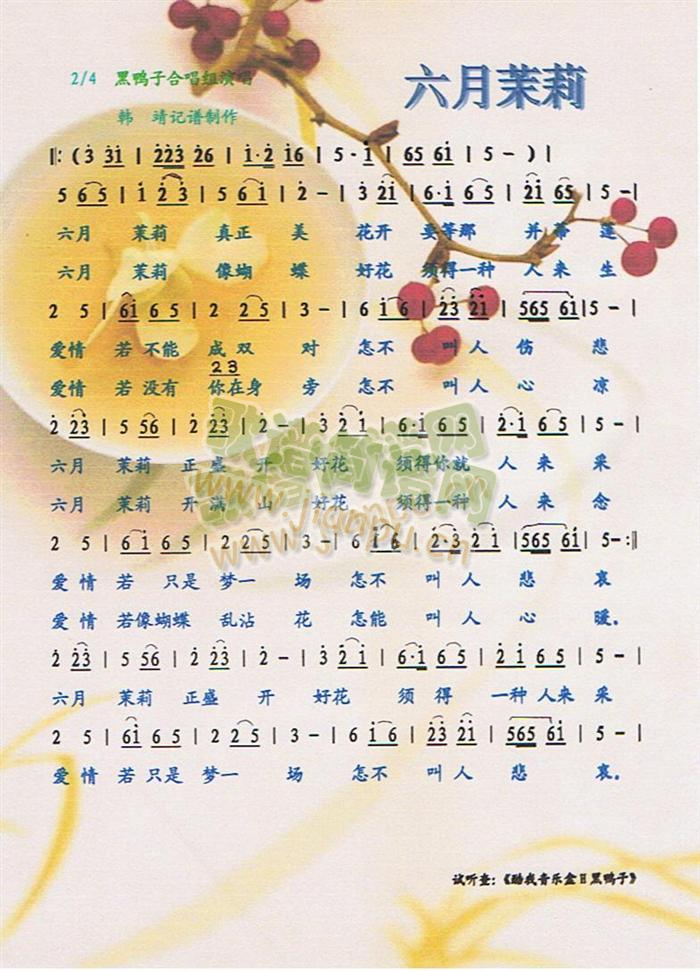 六月茉莉
2/4 黑鸭子合唱组演唱
韩 靖记谱制作
‖: ( 3 3 1 | 2 2 3 2 6 | 1 · 2 1 6 | 5 · 1 | 6 5 6 1 | 5 - ) |
5 6 5 | 1 2 3 | 5 6 1 | 2 - | 3 2 1 | 6 · 1 6 5 | 2 1 6 5 | 5 - |
六月 茉莉 真正 美 花开 要等那 并蒂 莲
六月 茉莉 像蝴 蝶 好花 须得一种 人来 生
2 5 | 6 1 6 5 | 2 2 5 | 3 - | 6 1 6 | 2 3 2 1 | 5 6 5 6 1 | 5 - |
爱情 若不能 成双 对 怎不 叫人 伤 悲
2 3
爱情 若没有 你在身 旁 怎不 叫人 心 凉
2 2 3 | 5 5 6 | 2 2 3 | 2 - | 3 2 1 | 6 · 1 6 5 | 2 1 6 5 | 5 - |
六月 茉莉 正盛 开 好花 须得你就 人来 采
六月 茉莉 开满 山 好花 须得一种 人来 念
2 5 | 6 1 6 5 | 2 2 5 | 3 - | 6 1 6 | 2 · 3 2 1 | 5 6 5 6 1 | 5 - :‖
爱情 若 只是 梦一 场 怎不 叫人 悲 哀
爱情 若像蝴蝶 乱沾 花 怎能 叫人 心 暖。
2 2 3 | 5 5 6 | 2 2 3 | 2 - | 3 2 1 | 6 · 1 6 5 | 2 1 6 5 | 5 - |
六月 茉莉 正盛 开 好花 须 得 一种 人来 采
2 5 | 6 1 6 5 | 2 2 5 | 3 - | 6 1 6 | 2 3 2 1 | 5 6 5 6 1 | 5 - |
爱情 若 只是 梦一 场 怎不 叫人 悲 哀。
试听查：《酷我音乐盒日黑鸭子》